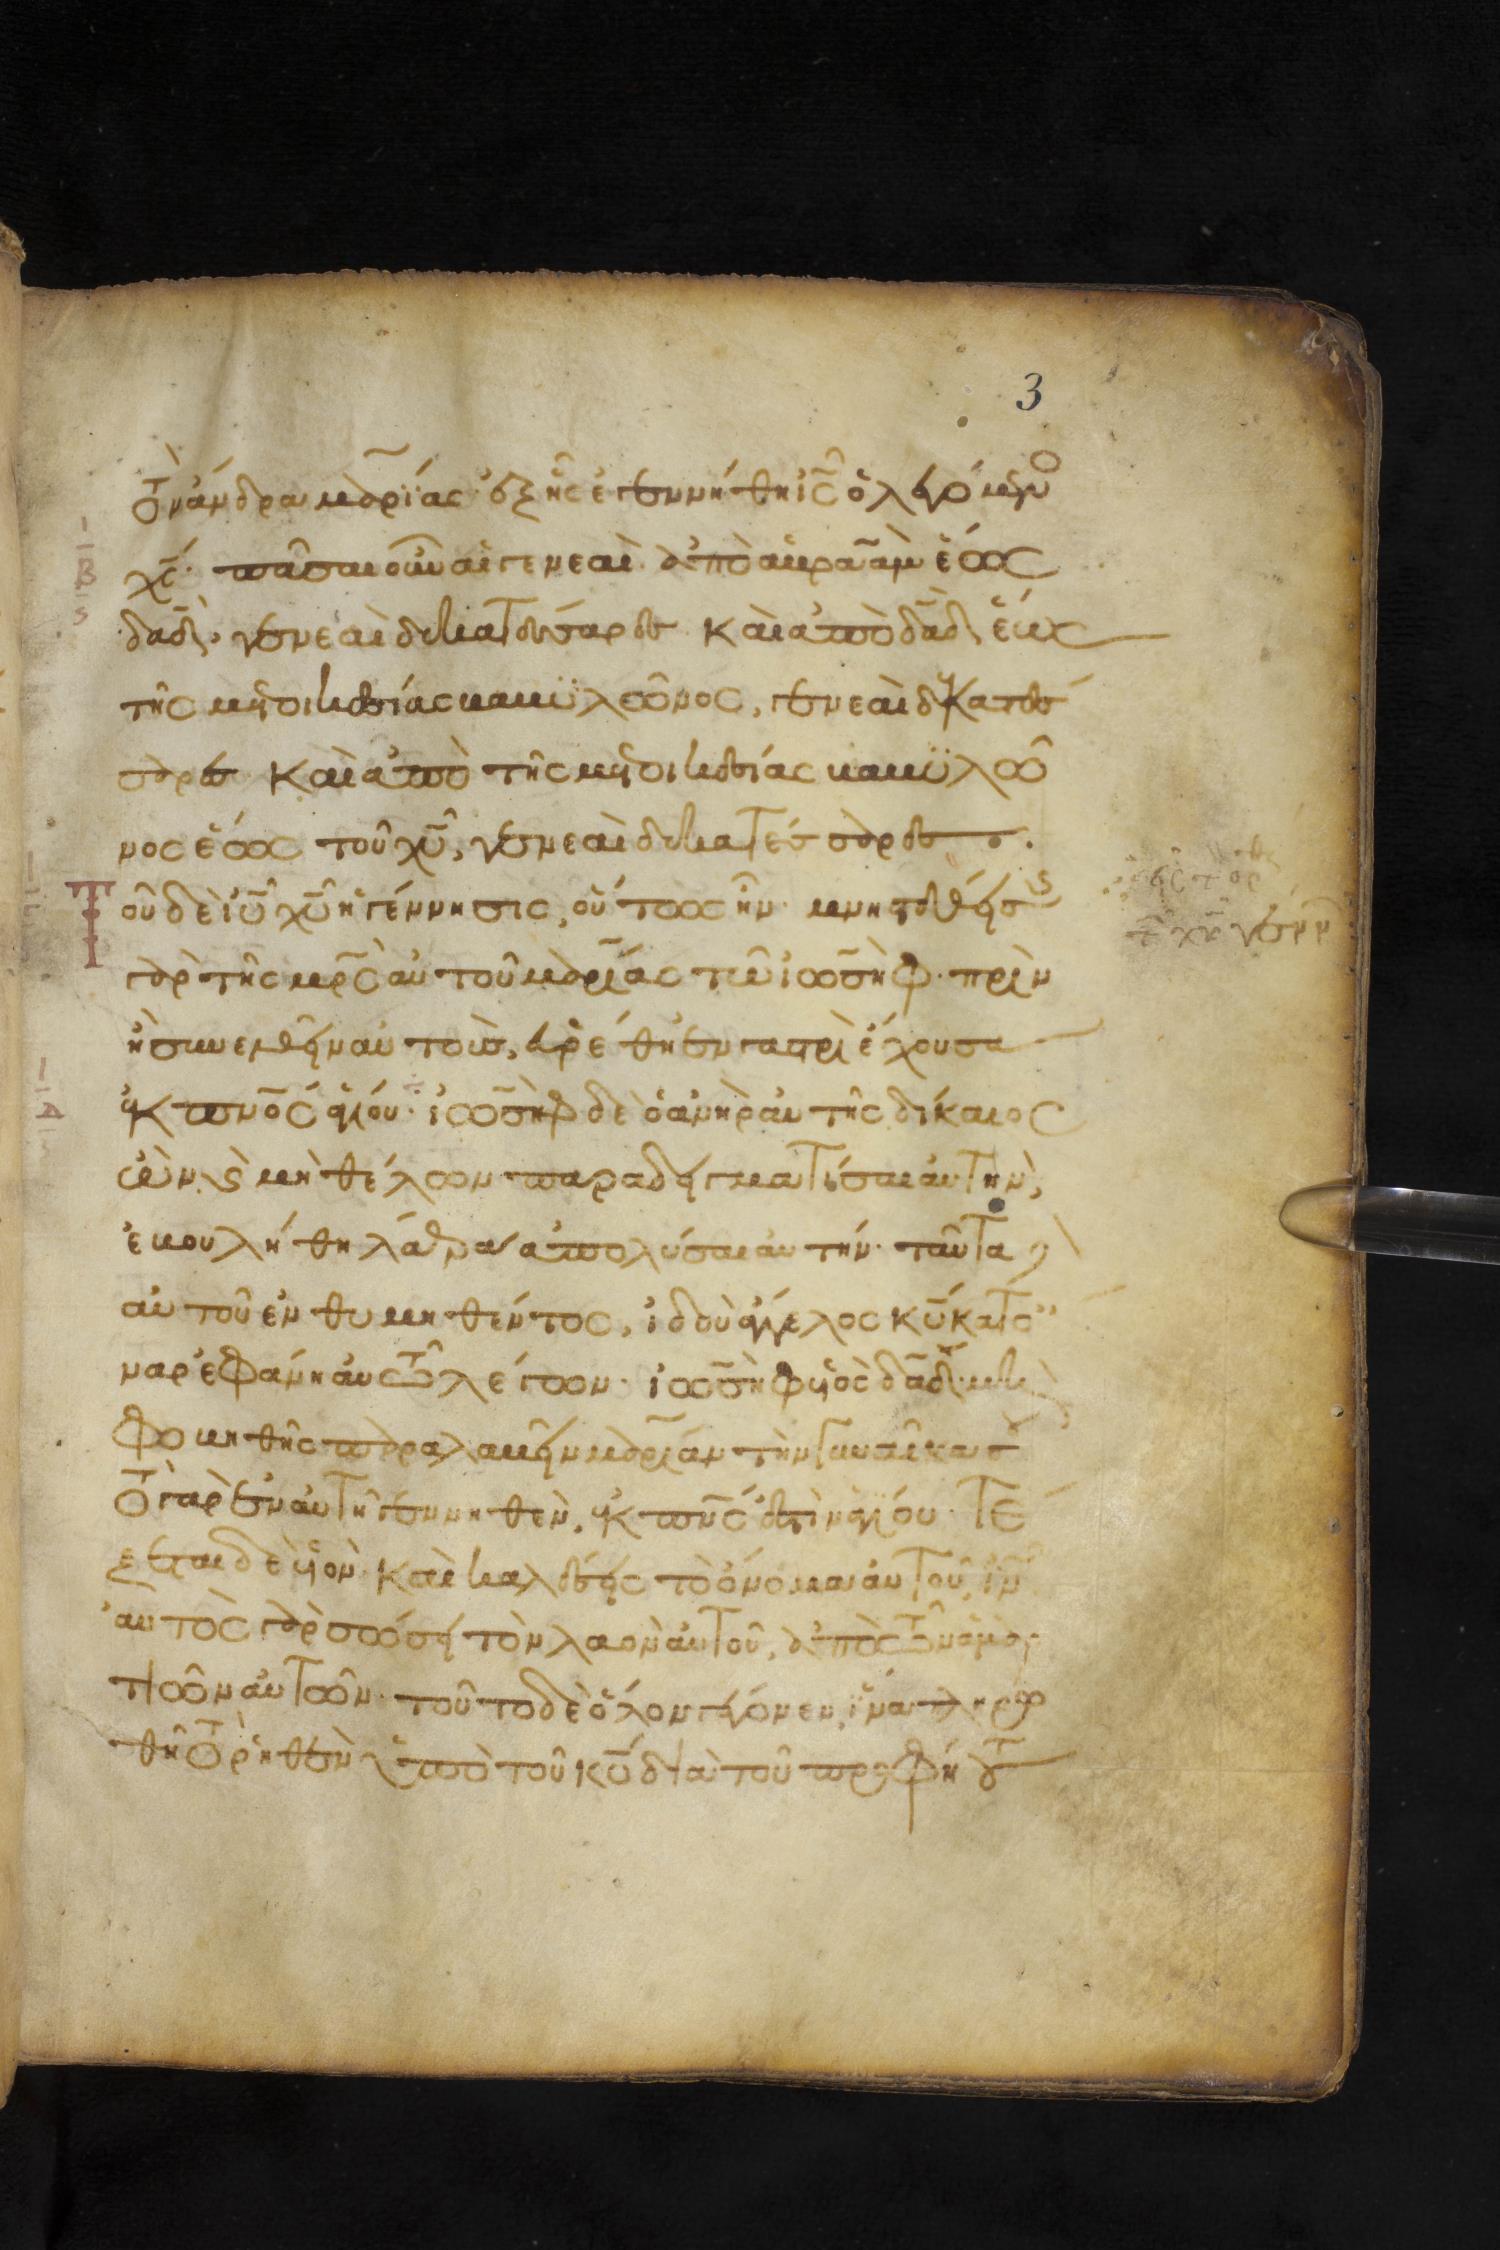 3
τὸν ἄνδρα μαρίας· ἐξ ἧς ἐγεννήθη ἰς̅ ὁ λεγόμενο
χς̅· πᾶσαι οὖν αἱ γενεαὶ ἀπὸ ἀβραὰμ ἕως
δαδ̅· γενεαὶ δεκατέσσαρες καὶ ἀπὸ δαδ̅ ἕως
τῆς μετοικεσίας βαβυλῶνος, γενεαὶ δεκατέσ
σαρες καὶ ἀπὸ τῆς μετοικεσίας βαβυλῶ
νος ἕως τοῦ χυ̅, γενεαὶ δεκατέσσαρες
Τοῦ δὲ ιυ̅ χυ̅ ἡ γέννησις, οὕτως ἦν· μνηστευθείσης
γὰρ τῆς μρς̅ αὐτοῦ μαρίας τῶ ἰωσὴφ· πρὶν
ἢ συνελθεῖν αὐτοὺς, εὑρέθη ἐν γαστρὶ ἔχουσα
ἐκ πνς̅ ἁγίου· ἰωσὴφ δὲ ὁ ἀνὴρ αὐτῆς δίκαιος
ὢν, καὶ μὴ θέλων παραδειγματίσαι αὐτὴν,
ἐβουλήθη λάθρα ἀπολύσαι αὐτήν· ταῦτα δὲ
αὐτοῦ ἐνθυμηθέντος, ἰδοὺ ἄγγελος κυ̅ κατ᾽ ὄ
ναρ ἐφάνη αὐτῶ λέγων· ἰωσὴφ υἱὸς δαδ̅· μὴ
φοβηθῆς παραλαβεῖν μαριὰμ τὴν γυναῖκα σου
τὸ γὰρ ἐν αὐτῆ γεννηθὲν, ἐκ πνς̅ ἐστὶν ἁγίου· τέ
ξεται δὲ υἱὸν καὶ καλέσεις τὸ ὄνομα αὐτοῦ, ιν̅
αὐτὸς γὰρ σώσει τὸν λαὸν αὐτοῦ, ἀπὸ τῶν ἁμαρ
τιῶν αὐτῶν· τοῦτο δὲ ὅλον γέγονεν, ἵνα πληρω
θῆ τὸ ῥηθὲν ὑπὸ τοῦ κυ̅ διὰ τοῦ προφήτου